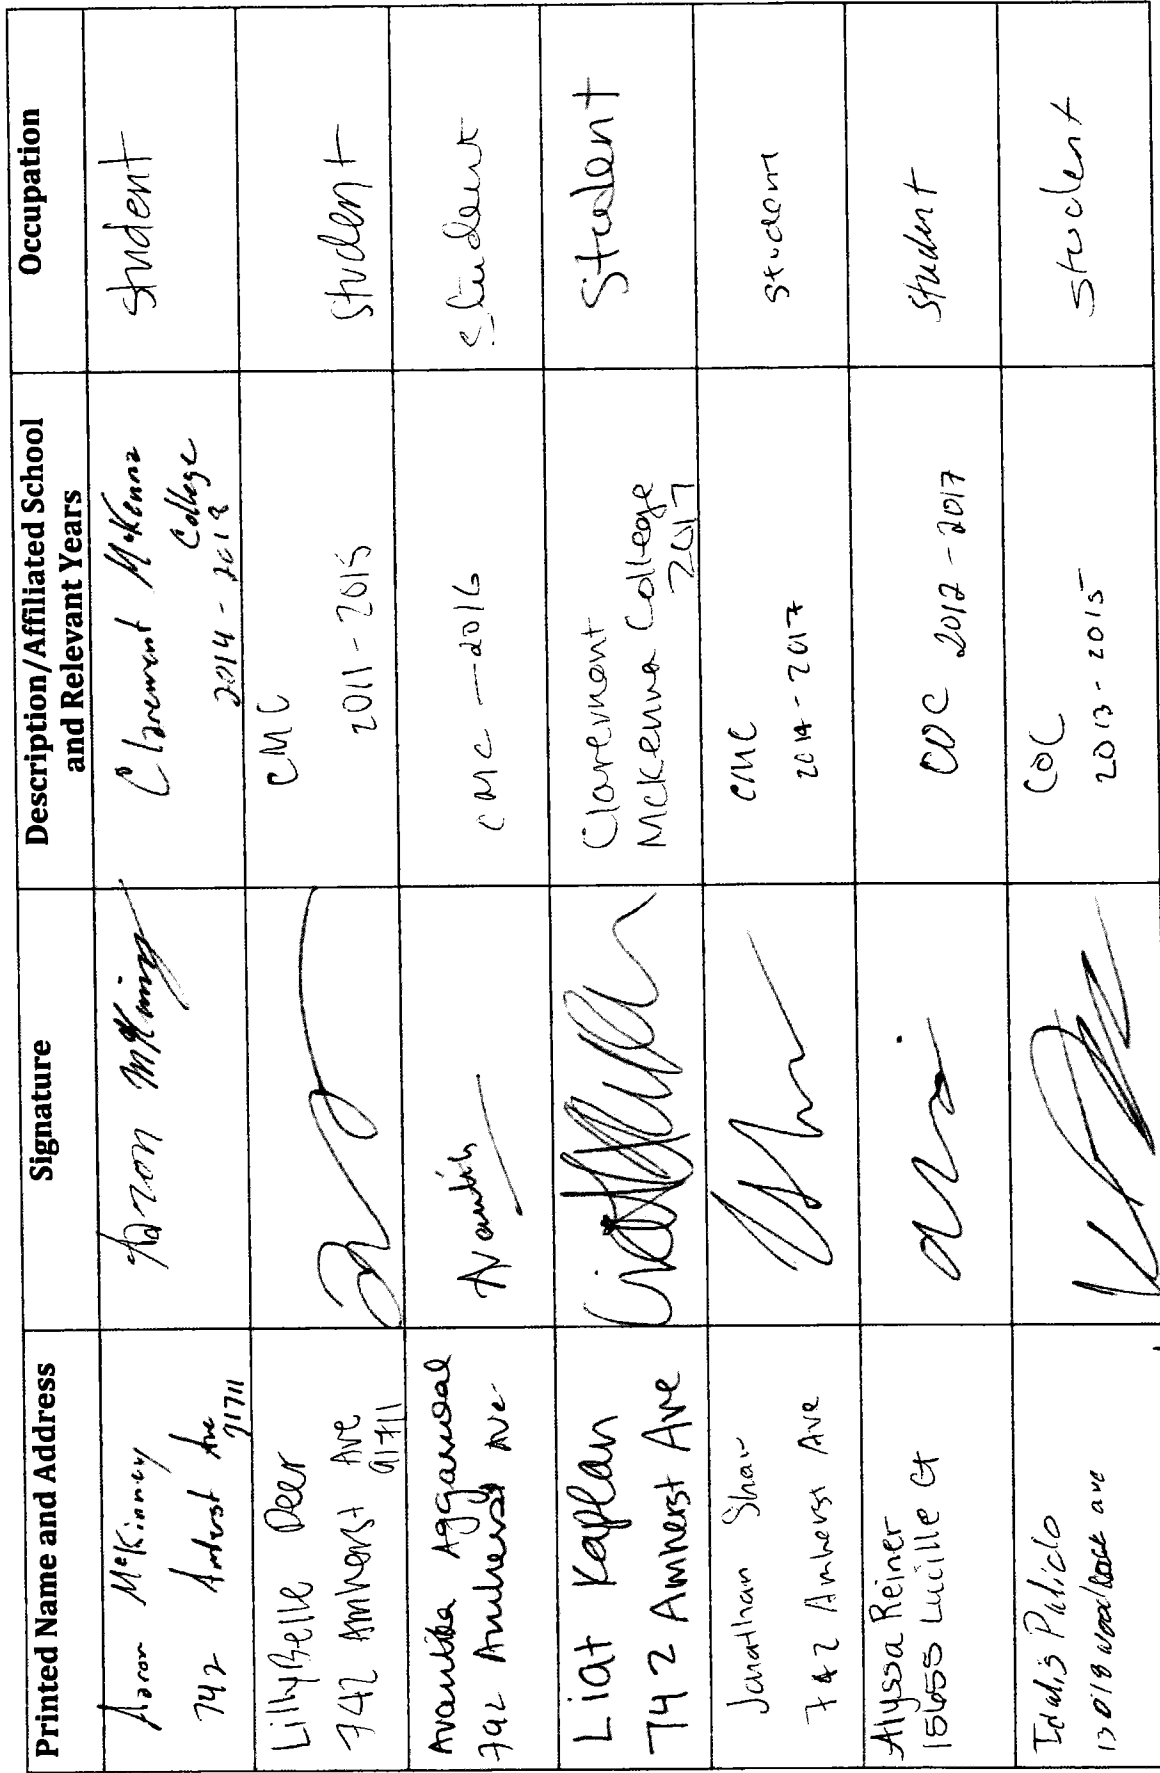 Printed Name and Address
Signature
Description/Affiliated School
and Relevant Years
Occupation
Aaron McKinney
742 Amherst Ave
91711
Aaron McKinney
Claremont McKenna
College
2014 - 2018
Student
LillyBelle Deer
742 Amherst Ave
91711
CMC
2011 - 2015
Student
Avantika Aggarwal
742 Amherst Ave
Avantika
CMC - 2016
Student
Liat Kaplan
742 Amherst Ave
Claremont
McKenna College
2017
Student
Jonathan Shaw
742 Amherst Ave
CMC
2014 - 2017
Student
Alyssa Reiner
15655 Lucille Ct
COC 2012 - 2017
Student
Pulido
13018 ave
COC
2013 - 2015
Student